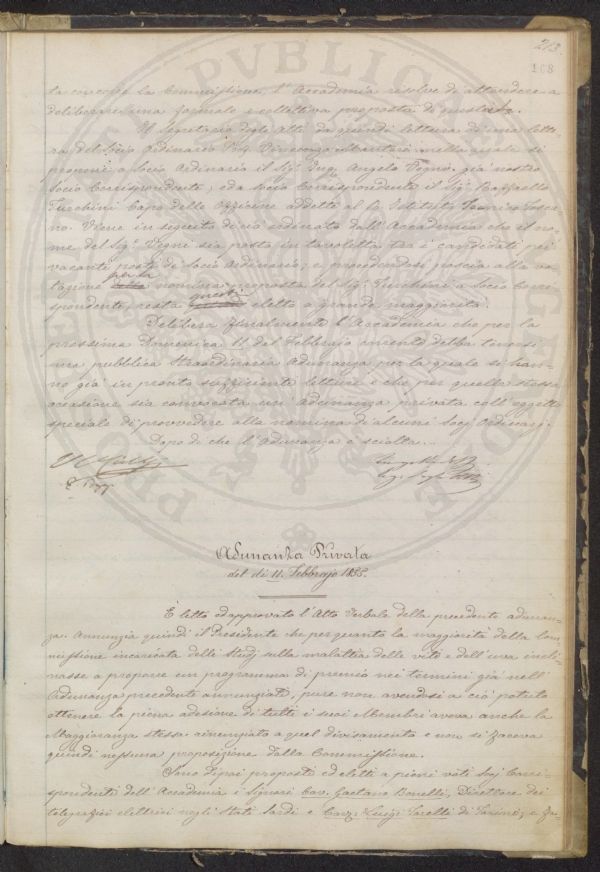 213.
168
la concorse la Commissione, l'Accademia resolve di attendere a
deliberare una formale e collettiva proposta di questa.
Il Segretario degli Atti da quindi lettura di una lette-
ra del Socio Ordinario nella quale si
propone a Socio Ordinario il Sig. Ing. Angelo Vegni già nostro
Socio Corrispondente, ed a Socio Corrispondente il Sig. Raffaello
Turchini Capo delle Officine addette al R. Istituto Tecnico Tosca-
no. Viene in seguito di ciò ordinato dall'Accademia che il no-
me del Sig. Vegni sia posto in tavoletta tra i candidati pei
vacanti posti di Socio Ordinario; e procedendosi poscia alla vo-
tazione per la nomina proposta del Sig. Turchini a Socio Corri-
spondente, resta questi eletto a grande maggiorità.
Delibera finalmente l'Accademia che per la
prossima Domenica 11 del Febbrajo corrente debba tenersi
una pubblica straordinaria Adunanza per la quale si han-
no già in pronto sufficienti letture e che per quella stessa
occasione sia convocata un'Adunanza privata coll'oggetto
speciale di provvedere alla nomina di alcuni Socj Ordinarj.
Dopo di che l'Adunanza è sciolta.
Adunanza Privata
del dì 11. Febbrajo 1855.
È letto ed approvato l'Atto Verbale della precedente adunan-
za. Annunzia quindi il Presidente che per quanto la maggiorità della Com-
missione incaricata delli Studj sulla malattia delle viti e dell'uva incli-
nasse a proporre un programma di premio nei termini già nell'
Adunanza precedente annunziati, pure non avendosi a ciò potuto
ottenere la piena adesione di tutti i suoi Membri aveva anche la
Maggioranza stessa rinunziato a quel divisamento e non si faceva
quindi nessuna proposizione dalla Commissione.
Sono dipoi proposti ed eletti a pieni voti Socj Corri-
spondenti dell'Accademia i Signori Cav. Gaetano Bonelli, Direttore dei
telegrafici elettrici negli Stati Sardi e Cav. Luigi Torelli di Torino; e